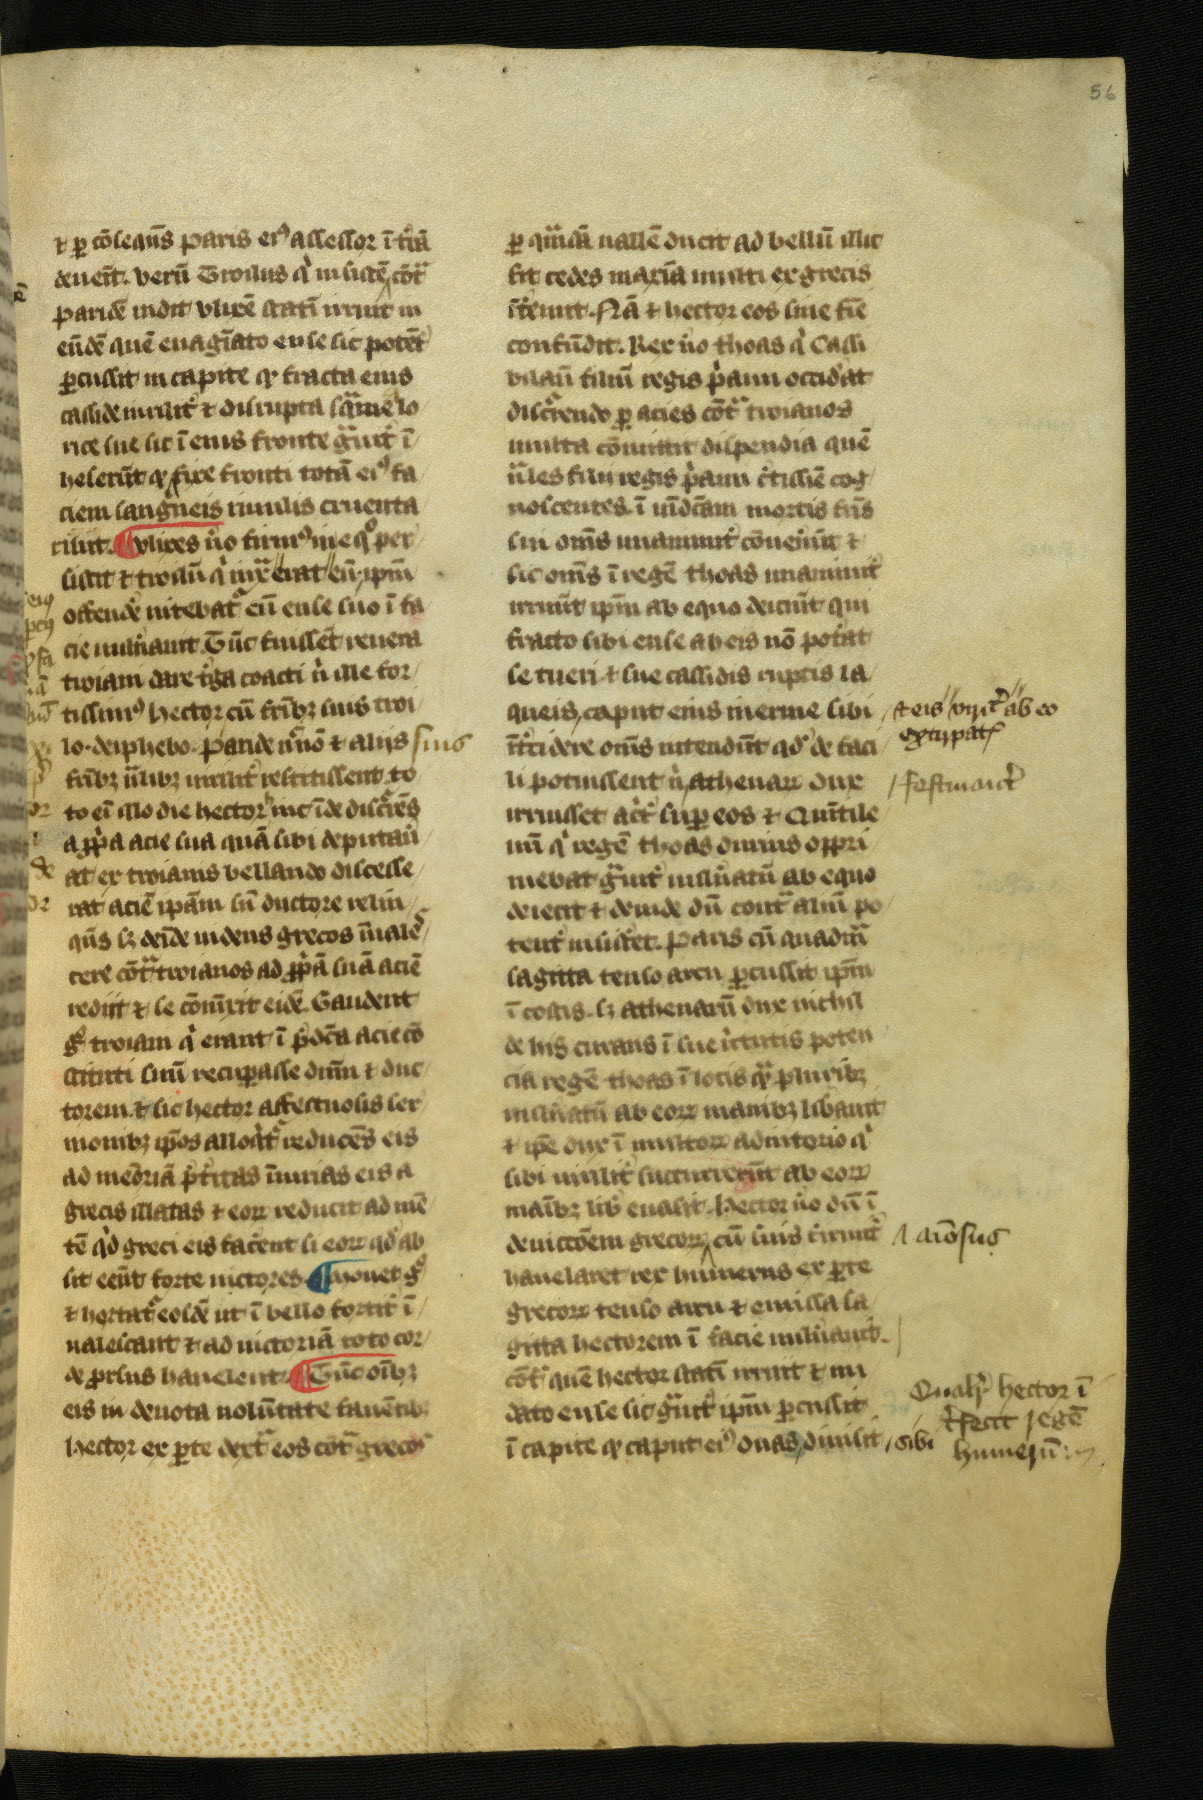 56
⁊ ꝑ cōsequēs Paris eiꝰ assessor ī tr̄ā
deuen̄t. Verū Troilus qͥ insistēs cōtᷓ
paridē uidit vlixē statī irruit in
eūdē quē euagīato ense sic potēt̄
ꝑcussit in capite ꝙ fracta eius
casside uirilit̄ ⁊ disrupta sqᷓme lo
rice sue sic ī eius fronte gͣuit̄ ī
heserūt ꝙ fixe fronti totā eiꝰ fa
ciem sanguineis riuulis cruenta
rūt. ¶ Vlixes ū̊o firmꝰ in eqͦ per
sistit ⁊ troilū qͥ iuxͣ erat eū ip̄m
offendē nitebatᷣ eū ense suo ī fa
cie uuln̄auit. Tūc fuisset reuera
troiani dare t̄ga coacti nͥ ille for
tissimꝰ hector cū frībꝫ suis troi
lo. deiphebo. Paride nͨnō ⁊ alijs suis
frībꝫ nl̄ibꝫ uirilit̄ restitissent to
to eī illo die hector hīc īde discurrēs
a ꝓpͥa acie sua quā sibi deputau̅
at ex troianis bellando discesse
rat aciē ipām sn̄ ductore relin
qn̄s lꝫ deīde uidens grecos īuale
scere cōtᷓ troianos ad ꝓpͥā suā aciē
redijt ⁊ se cōiūxit eidē. Gaudent
gͦ troiani qͥ erant ī p̄dc̄a acie cō
stituti suū recuꝑasse dn̄m ⁊ duc
torem. ⁊ sic hector affectuosis ser
monibꝫ ip̄os alloqͥtᷣ reducēs eis
ad memoriā p̄t̄itas īiurias eis a
grecis illatas ⁊ eoꝝ reducit ad mē
tē qͥd greci eis facēnt si eoꝝ qd̄ ab
sit eēnt forte uictores. ¶ Mouet gͦ
⁊ hortatᷣ eosdē ut ī bello fortit̄ ī
ualescant ⁊ ad uictoriā toto cor
de ꝓrsus hanelent. ¶ Tūc oībꝫ
eis in deuota uolūtate fauētibꝫ
hector ex ꝑte dextᷓ eos cōtᷓ grecos
ꝑ quādā uallē ducit ad bellū illic
fit cedes maxīa multi ex grecis
īt̄eunt. Nā ⁊ hector eos sine fīe
confūdit. Rex ū̊o thoas qͥ Cassi
bilaū filiū regis pͥami occid̄at
discurrendo ꝑ acies cōtᷓ troianos
multa cōmittit dispendia quē
nl̄es filij regis pͥami c̄tissīe cog
noscentes. ī uīdc̄am mortis frīs
sui om̄s unanimit̄ cōueniūt ⁊
sic om̄s ī regē thoas unanimit̄
irruūt ip̄m ab equo deiciūt qui
fracto sibi ense ab eis nō pot̄at
se tueri ⁊ sue cassidis ruptis la
queis, caput eius inerme sibi
īt̄cidere om̄s intendūt qdͦ de faci
li potuissent nͥ athenaꝝ dux
irruisset acͥt̄ suꝑ eos ⁊ Quītile
nū qͥ regē thoas durius oppri
mebat gͣuit̄ uuln̄atū ab equo
deiecit ⁊ deinde dū contᷓ aliū po
tent̄ insist̄et. Paris cū quadā
sagitta tenso arcu ꝑcussit ip̄m
ī costis. lꝫ athenarū dux nichil
de his curans ī sue u̇tutis poten
cia regē thoas ī locis qͣꝫ pluribꝫ
uuln̄atū ab eoꝝ manibꝫ lib̄auit
⁊ ip̄e dux ī multoꝝ adiutorio qͥ
sibi uirilit̄ succurrerūt ab eoꝝ
manibꝫ lib̄ euasit. Hector ū̊o dū ī
deuictōem grecoꝝ cū suis uirilit̄
hanelaret rex humerus ex ꝑte
grecoꝝ tenso arcu ⁊ emissa sa
gitta hectorem ī facie uuln̄auit.
cōtᷓ quē hector statī irruit ⁊ nu
dato ense sic gͣuit̄ ip̄m ꝑcussit
ī capite ꝙ caput eiꝰ duas diuisit
ab eo
festinant̄
sibi
Qualit̄ hector ī
t̄fecit regē
humerū